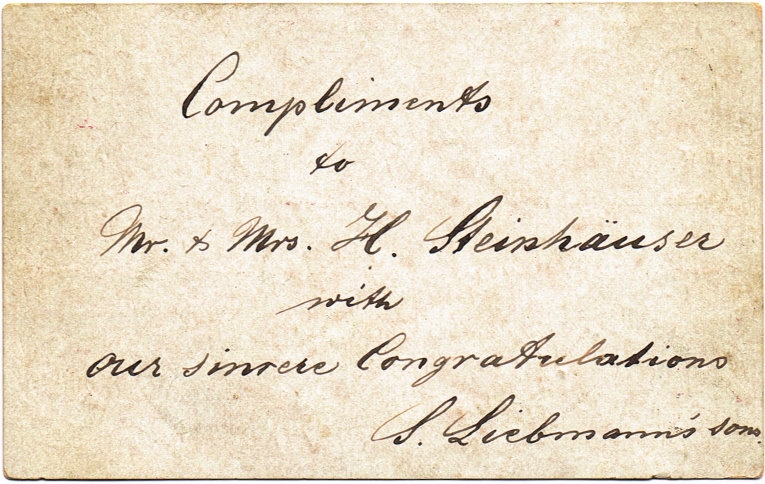 Compliments
to
Mr. & Mrs. H. Steinhäuser
with
our sincere Congratulations
S. Liebmann's sons.